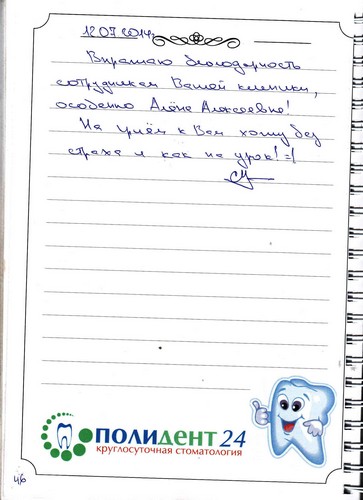 12.07.2014г.
Выражаю благодарность
сотрудникам Вашей клиники,
особенно Алёне Алексеевне!
На приём к Вам хожу без
страха и как на урок! =)
ПОЛИДЕНТ 24
круглосуточная стоматология
46